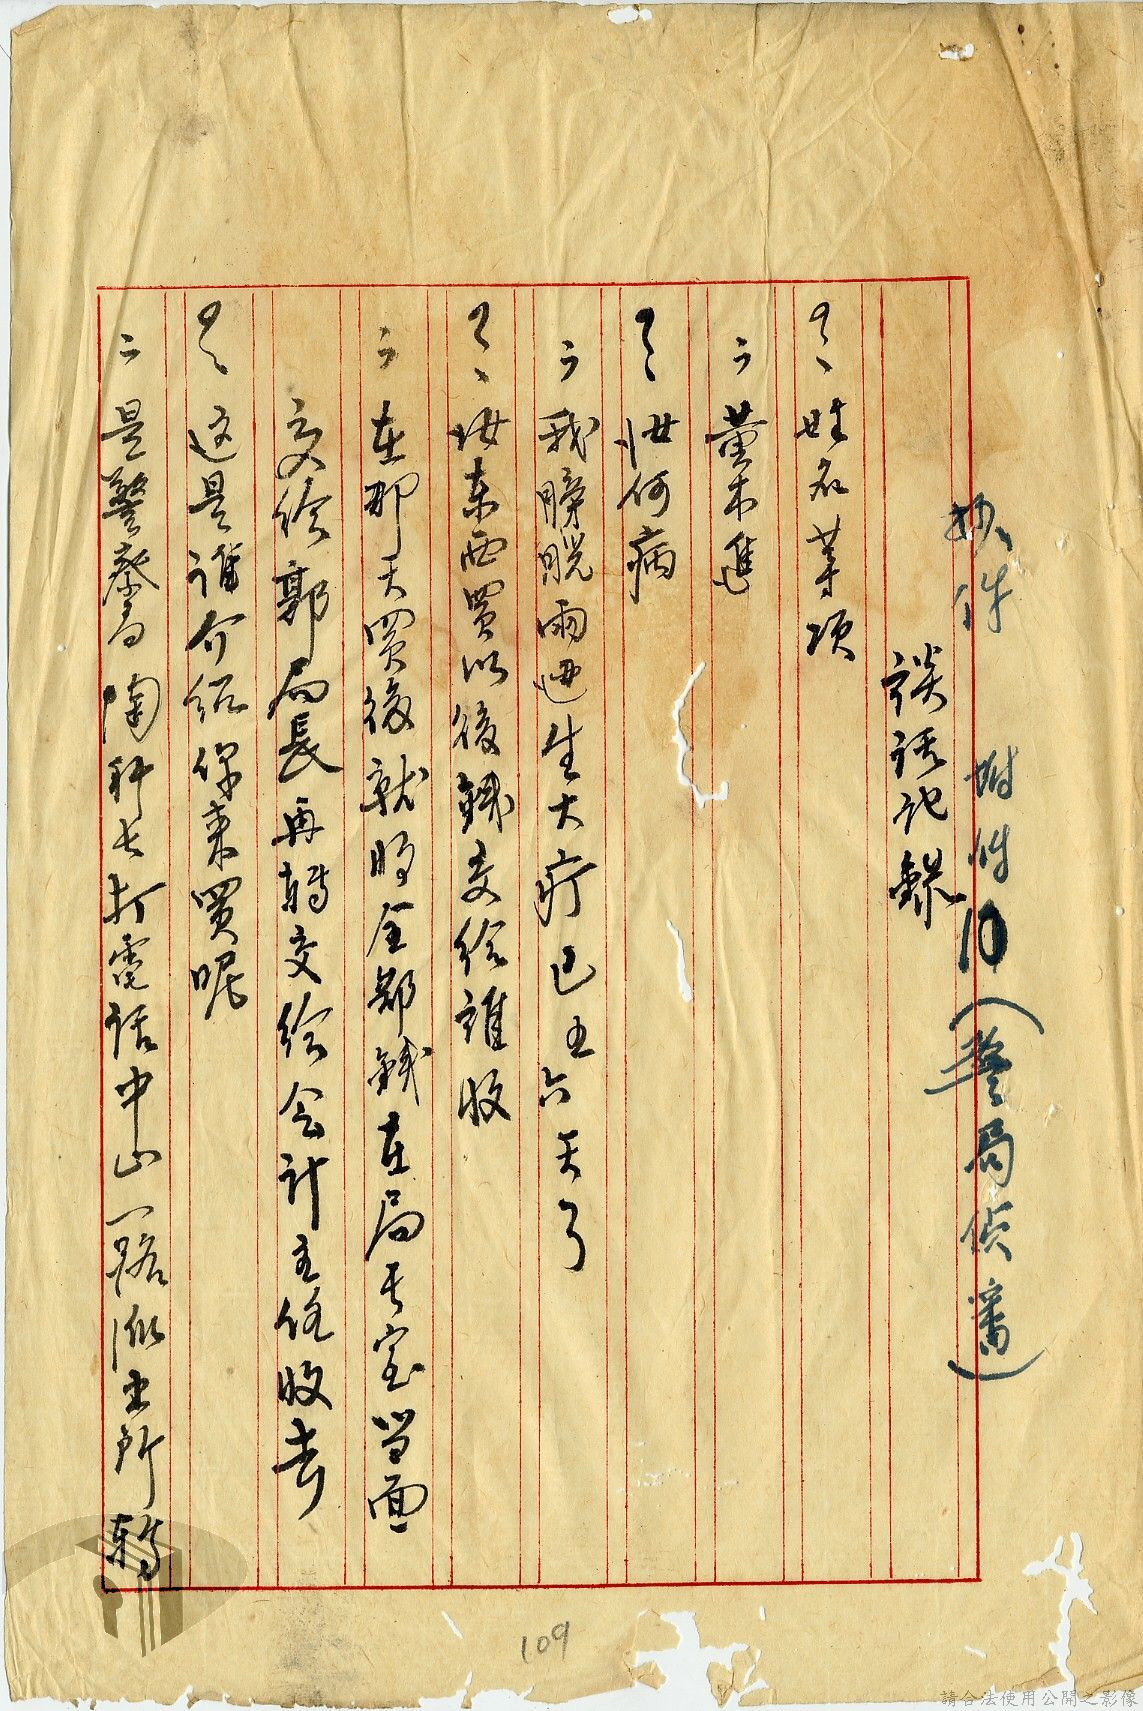 抄件 附件10(警局偵審)
談話記錄
?、姓名等項
ㄱ 董木進
? 汝何病
ㄱ 我膀胱兩邊生大疔已五六天了
?、汝東西買以後錢交給誰收
ㄱ 在那天買後就將全部錢在局長室当面
交給郭局長再轉交給会計主任收去
?、这是誰介紹你来買呢
ㄱ 是警察局陶科长打電話中山一路派出所轉
109
請合法使用公開之影像